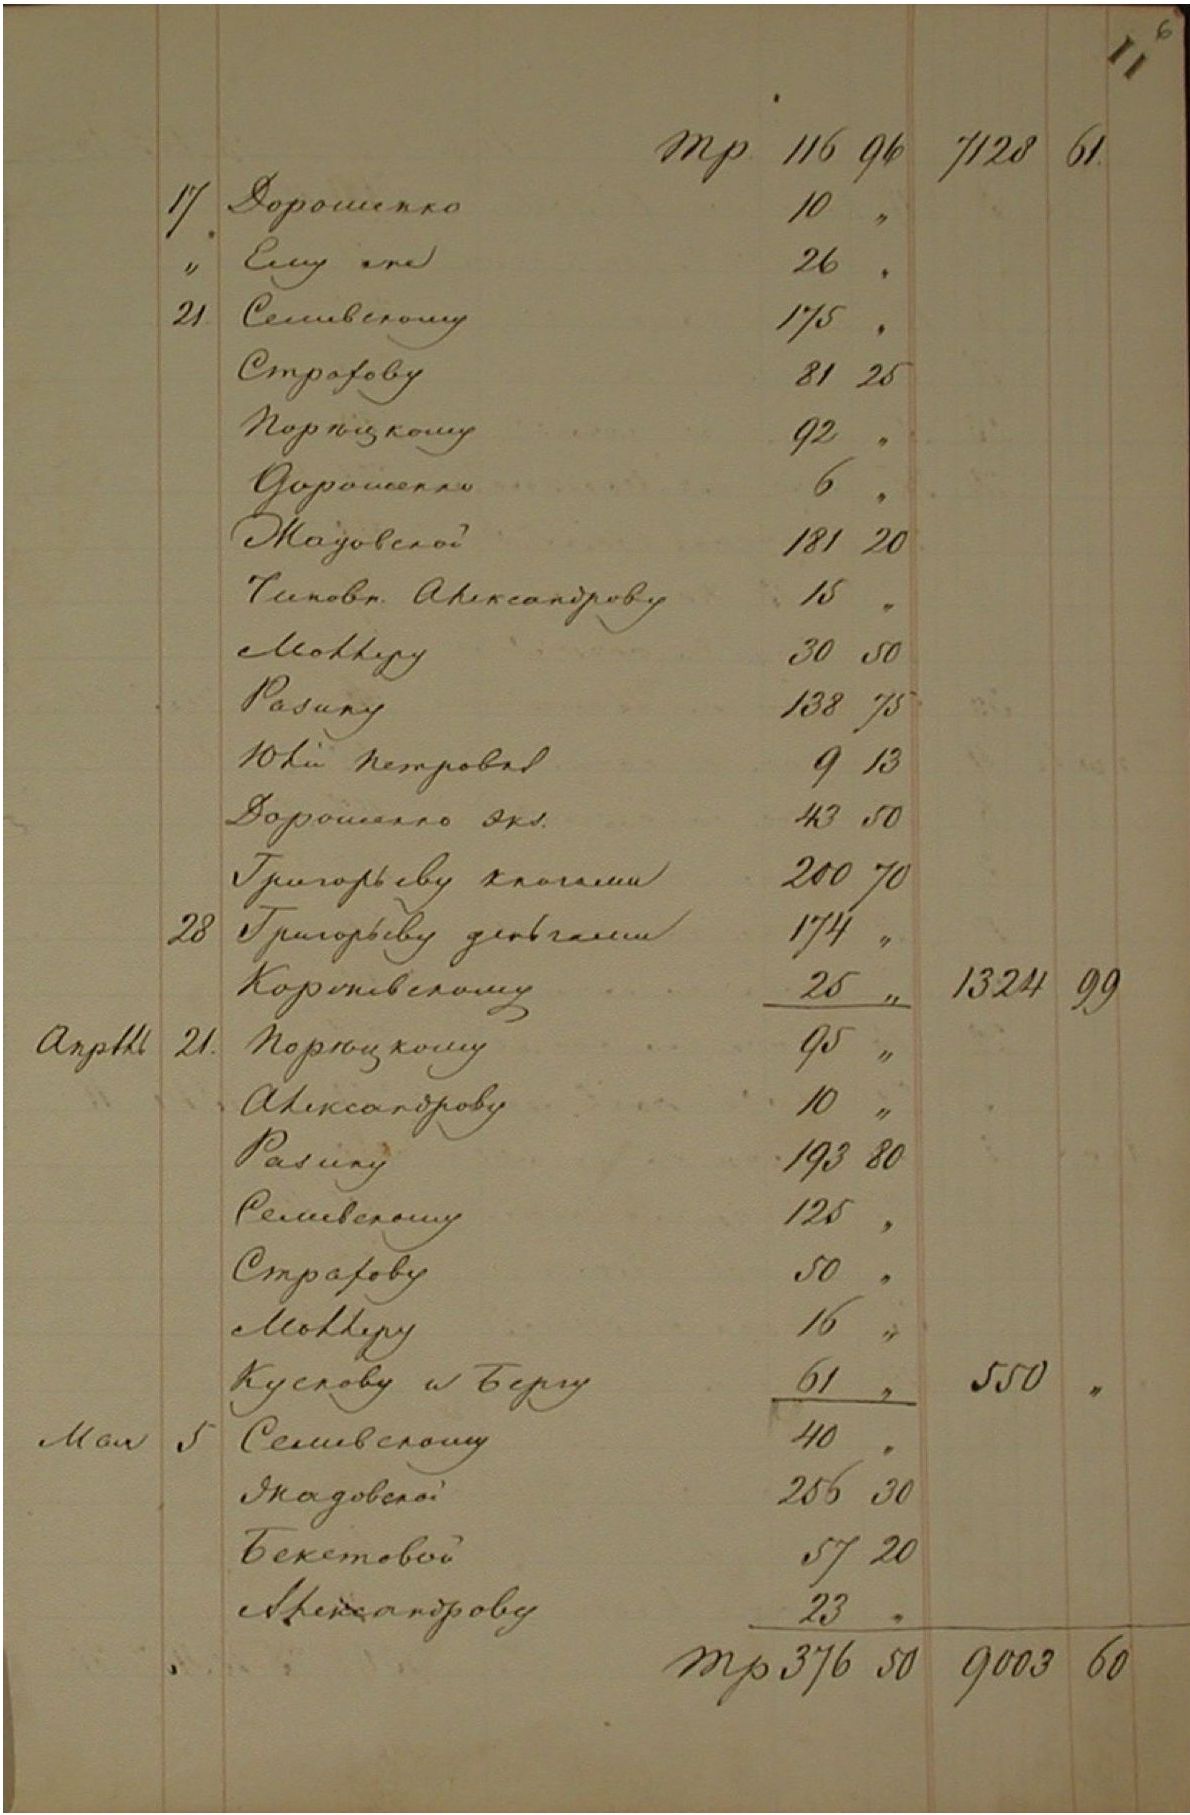 6
11
Тр. 116 96 7128 61.
17 Дорошенко 10 „
„ Ему же 26 „
21. Семевскому 175 „
Страхову 81 25
Порецкому 92 „
Дорошенко 6 „
Жадовской 181 20
Чиновн. Александрову 15 „
Моллеру 30 50
Разину 138 75
Юлии Петровне 9 13
Дорошенко экз. 43 50
Григорьеву книгами 200 70
28 Григорьеву деньгами 174 „
25 „ 1324 99
Апрѣль 21. Порецкому 95 „
Александрову 10 „
Разину 193 80
Семевскому 125 „
Страхову 50 „
Моллеру 16 „
Кускову и Бергу 61 „ 550 „
Мая 5 Семевскому 40 „
Жадовской 256 30
Бекетовой 57 20
Александрову 23 „
Тр 376 50 9003 60